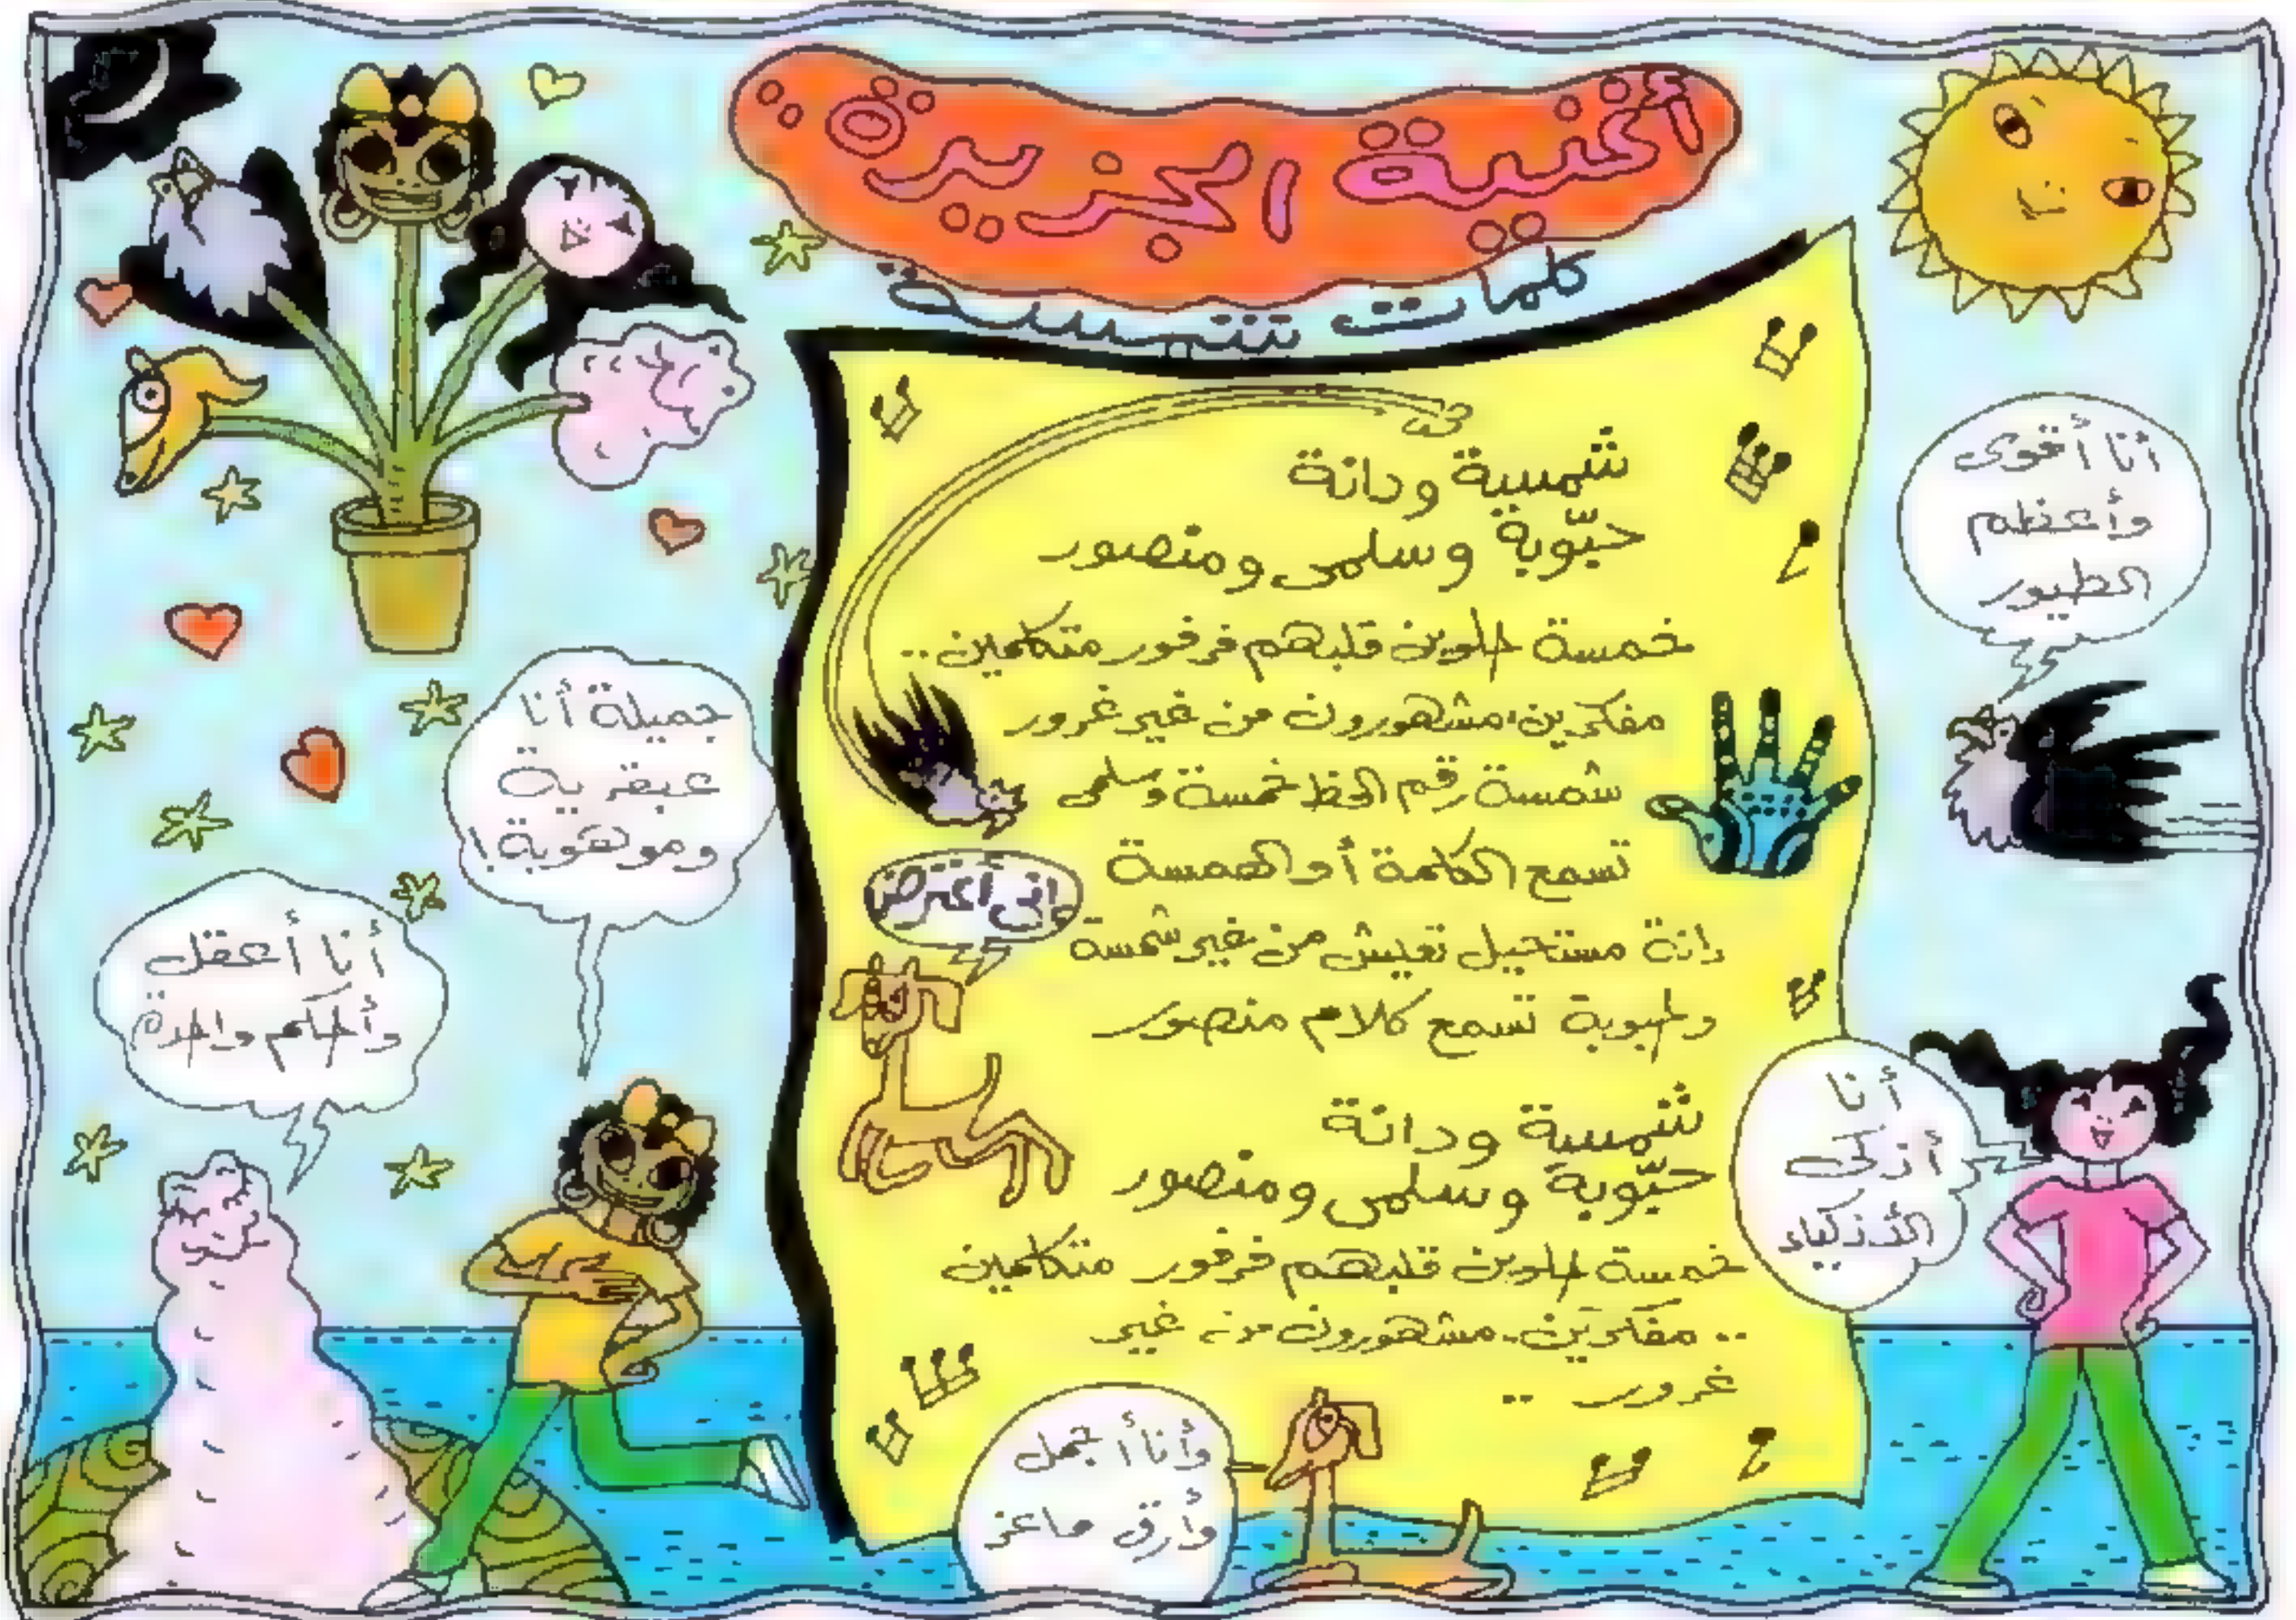 أغنية الجزيرة
كلمات شمسة
شمسية ودانة
حبّوبة وسلمى ومنصور
خمسة حلوين قلبهم فرفور متكاملين..
مفكرين، مشهورون من غير غرور
شمسة رقم الحظ خمسة وسلمى
تسمع الكلمة أو الهمسة
دانة مستحيل تعيش من غير شمسة
وحبوبة تسمع كلام منصور
شمسية ودانة
حبّوبة وسلمى ومنصور
خمسة حلوين قلبهم فرفور متكاملين
.. مفكرين. مشهورون من غير
غرور ..
أنا أقوى
وأعظم
الطيور
إنى أعترض
أنا
أذكى
الأذكياء
جميلة أنا
عبقرية
وموهوبة!
أنا أعقل
وأحكم واحدة
وأنا أجمل
وأرق ماعز